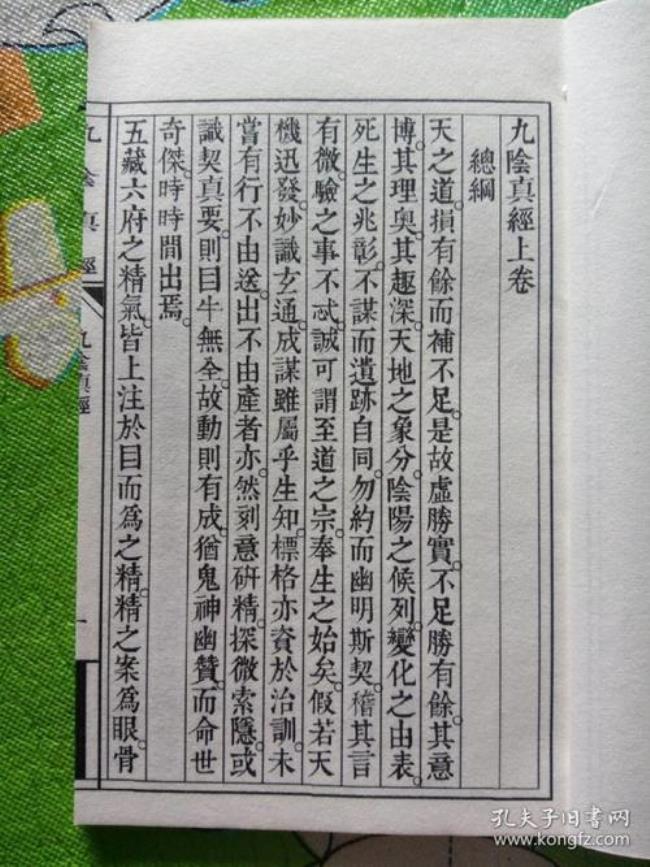 九陰真經上卷
總綱
天之道。損有餘而補不足。是故虛勝實。不足勝有餘。其意
博。其理奧。其趣深。天地之象分。陰陽之候列。變化之由表。
死生之兆彰。不謀而遺跡自同。勿約而幽明斯契。稽其言
有微。驗之事不忒。誠可謂至道之宗。奉生之始矣。假若天
機迅發。妙識玄通。成謀雖屬乎生知。標格亦資於治訓。未
嘗有行不由送。出不由產者亦。然刻意研精。探微索隱。或
識契真要。則目牛無全。故動則有成。猶鬼神幽贊。而命世
奇傑。時時間出焉。
五藏六府之精氣。皆上注於目而為之精。精之案為眼。骨
九陰真經
九陰真經
一
孔夫子旧书网
www.kongfz.com